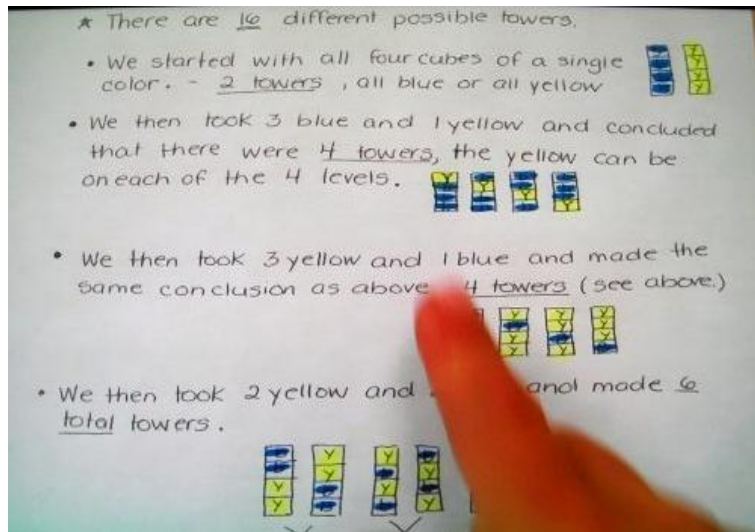 * There are 16 different possible towers.
• We started with all four cubes of a single
color. - 2 towers, all blue or all yellow
• We then took 3 blue and 1 yellow and concluded
that there were 4 towers, the yellow can be
on each of the 4 levels.
• We then took 3 yellow and 1 blue and made the
same conclusion as above 4 towers (see above.)
• We then took 2 yellow and and made 6
total towers.